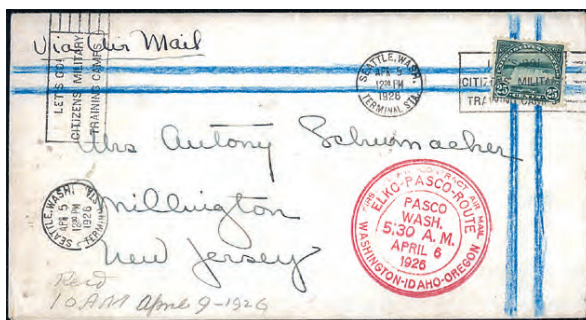 Via Air Mail
LET'S GO!
CITIZENS MILITARY
TRAINING CAMPS
SEATTLE, WASH.
APR 5
12 30 PM
1926
TERMINAL STA.
LET'S GO!
CITIZENS MILITARY
TRAINING CAMPS
25 25
Mrs Antony Schumacher
Millington
New Jersey
SEATTLE, WASH.
APR 5
12 30 PM
1926
CONTRACT AIR MAIL
ELKO-PASCO-ROUTE
PASCO
WASH.
5:30 A.M.
APRIL 6
1926
WASHINGTON-IDAHO-OREGON
Recd
10 AM April 9-1926